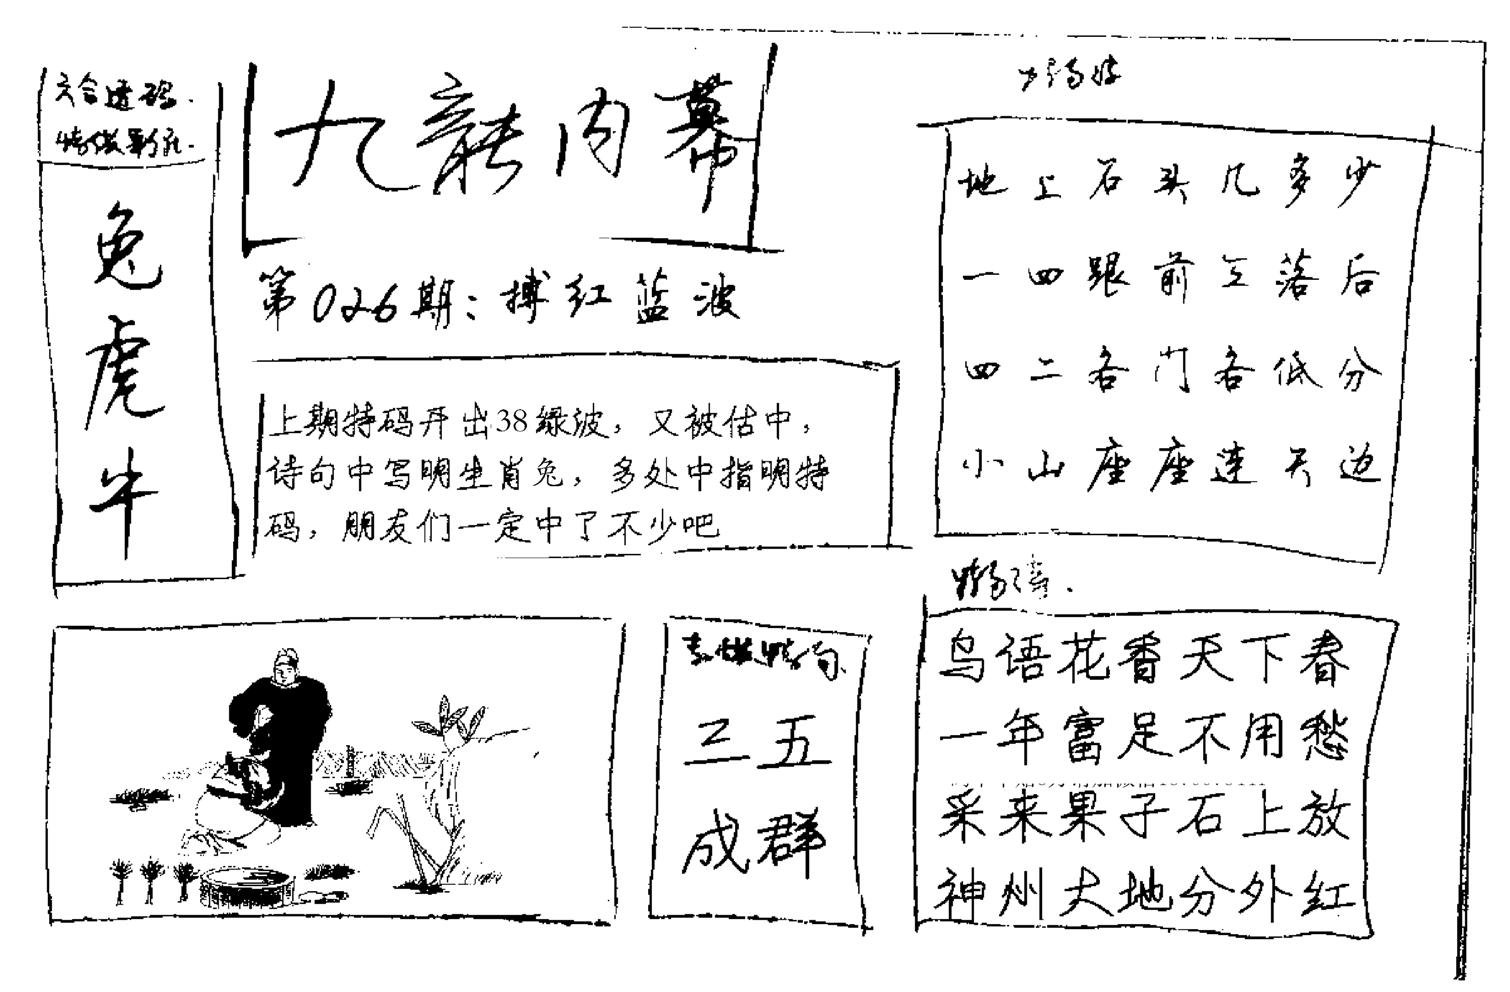 六合透码.
兔
虎
牛
九龍内幕
第026期：搏红蓝波
上期特码开出38绿波，又被估中，
诗句中写明生肖兔，多处中指明特
码，朋友们一定中了不少吧
三五
成群
地上石头几多少
一四跟前 落后
四二各门各低分
小山座座连天边
鸟语花香天下春
一年富足不用愁
采来果子石上放
神州大地分外红